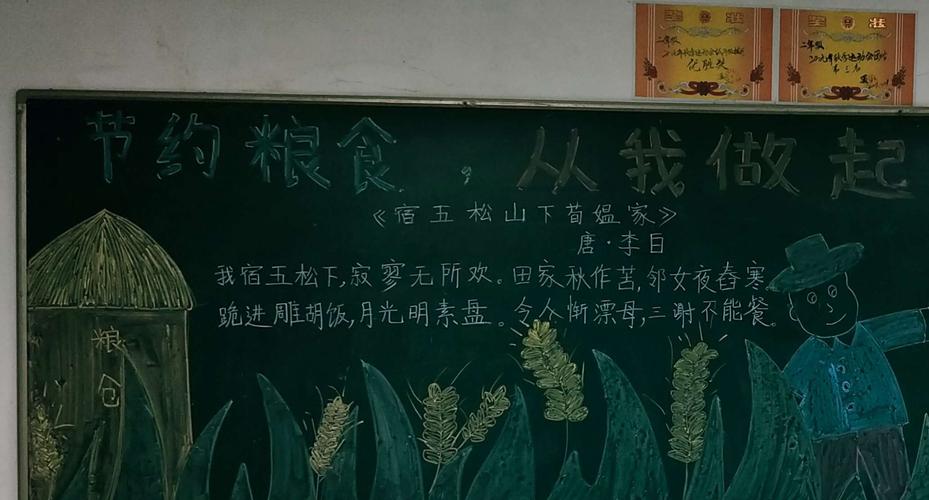 奖状
奖状
二年级
优胜奖
二年级
第三名
节约粮食，从我做起
《宿五松山下荀媪家》
唐·李白
我宿五松下，寂寥无所欢。田家秋作苦，邻女夜舂寒。
跪进雕胡饭，月光明素盘。令人惭漂母，三谢不能餐。
粮仓